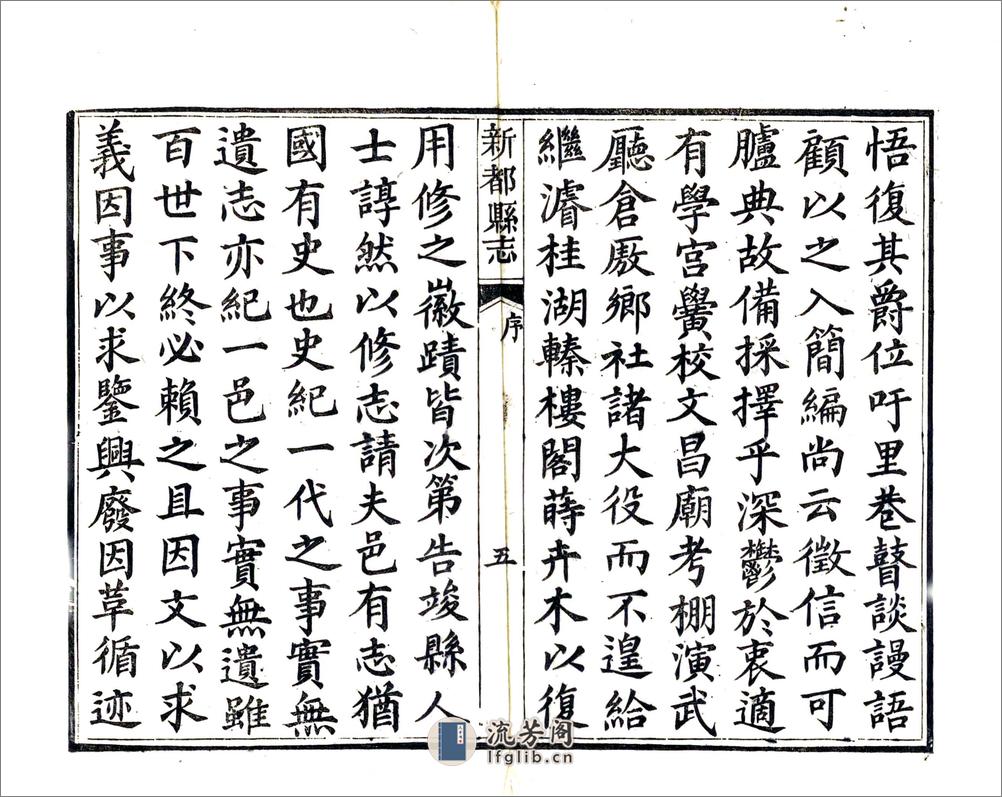 悟復其爵位吁里巷瞽談謾語
顧以之入簡編尚云徵信而可
臚典故備採擇乎深鬱於衷適
有學宮黌校文昌廟考棚演武
廳倉厫鄉社諸大役而不遑給
繼濬桂湖轃樓閣蒔卉木以復
新都縣志
序
五
用修之徽蹟皆次第告竣縣人
士諄然以修志請夫邑有志猶
國有史也史紀一代之事實無
遺志亦紀一邑之事實無遺雖
百世下終必賴之且因文以求
義因事以求鑒興廢因革循迹
流芳阁
lfglib.cn